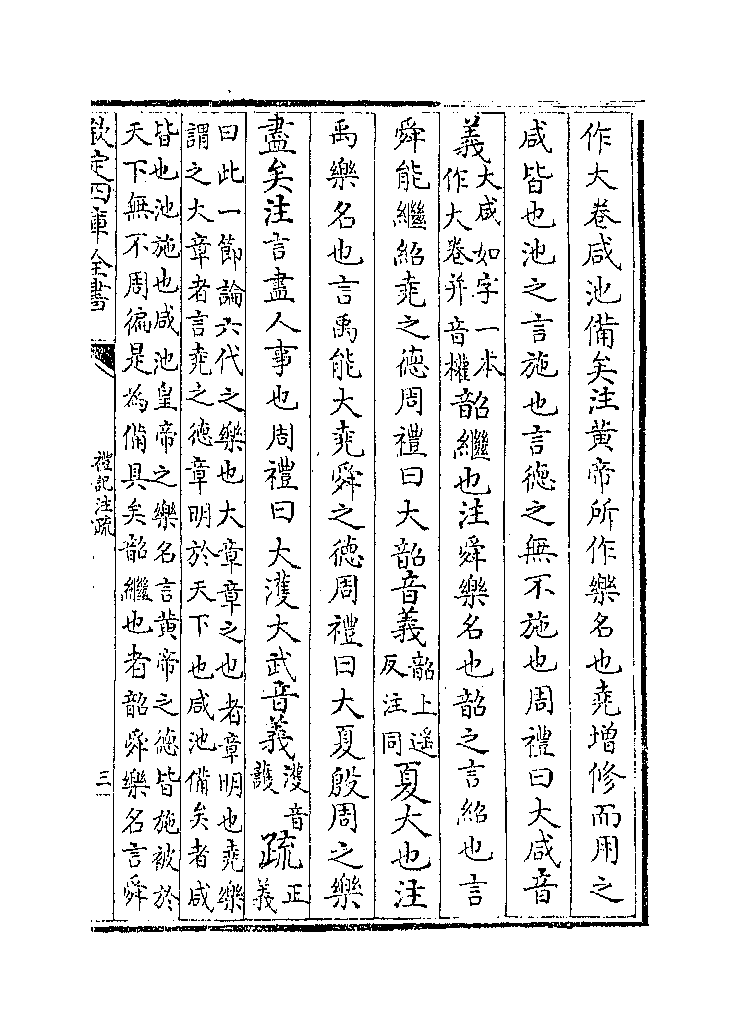 作大卷咸池備矣注黄帝所作樂名也堯增修而用之
咸皆也池之言施也言德之無不施也周禮曰大咸音
義大咸如字一本
作大卷并音權韶繼也注舜樂名也韶之言紹也言
舜能繼紹堯之德周禮曰大韶音義韶上遥
反注同夏大也注
禹樂名也言禹能大堯舜之德周禮曰大夏殷周之樂
盡矣注言盡人事也周禮曰大濩大武音義濩音
護疏正
義
曰此一節論六代之樂也大章章之也者章明也堯樂
謂之大章者言堯之德章明於天下也咸池備矣者咸
皆也池施也咸池皇帝之樂名言黄帝之德皆施被於
天下無不周徧是為備具矣韶繼也者韶舜樂名言舜
欽定四庫全書
禮記注疏
三